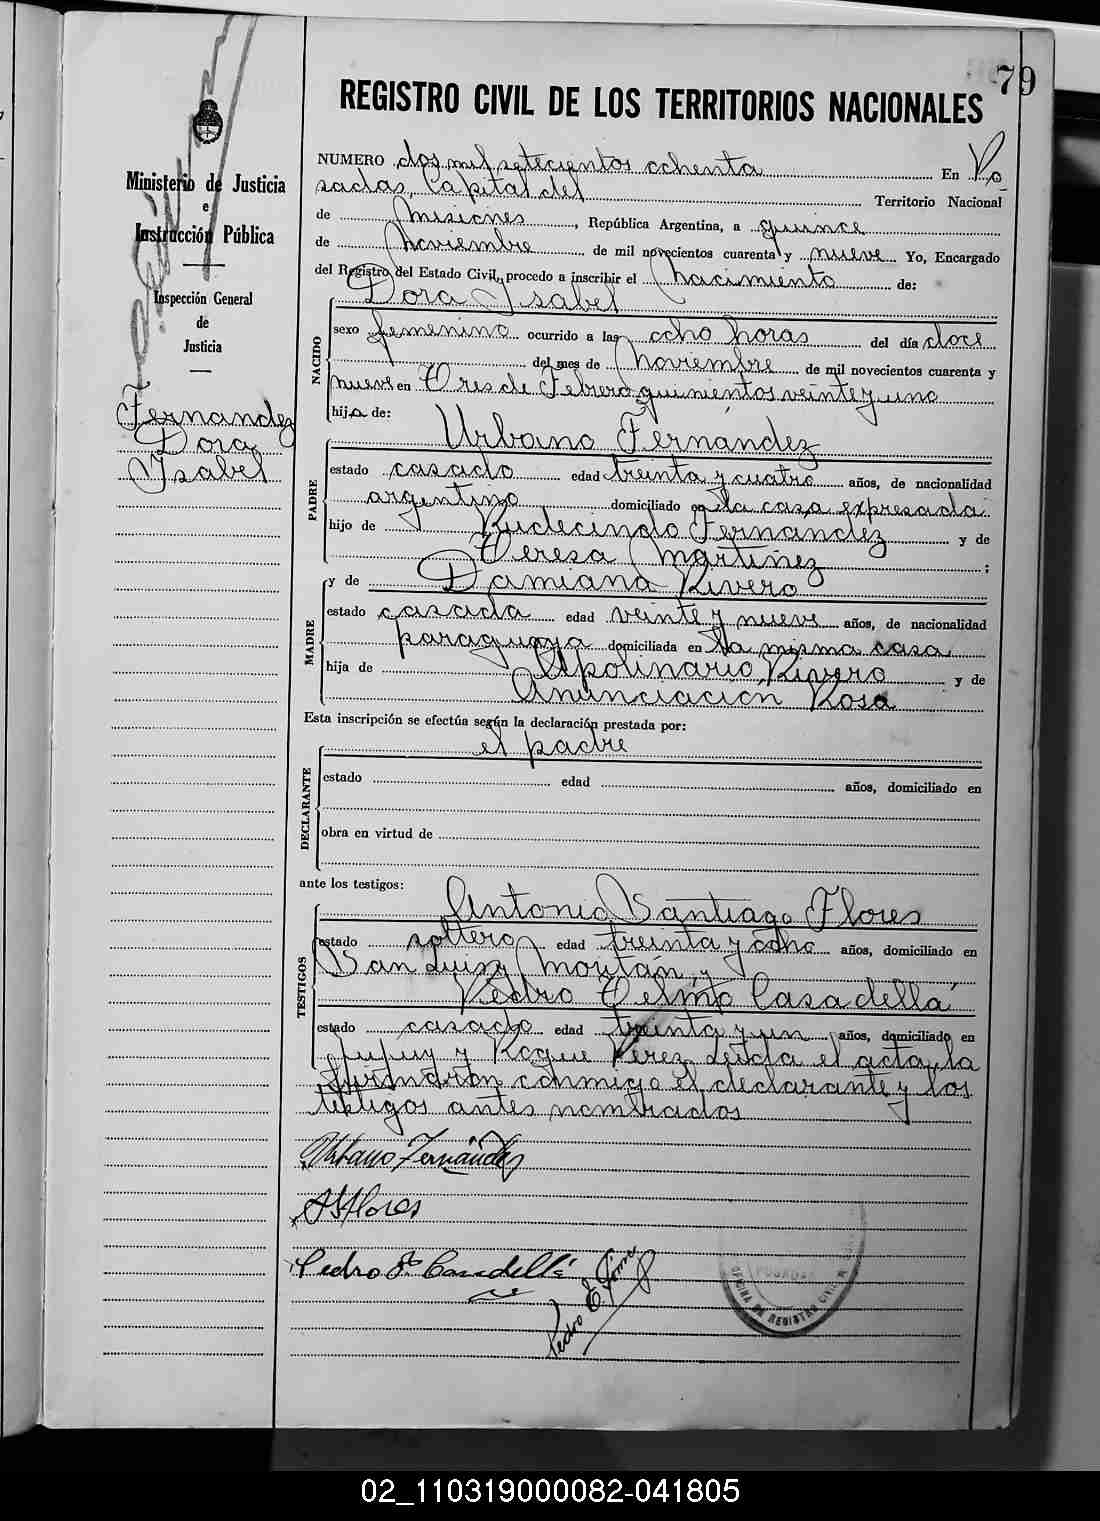 79
REGISTRO CIVIL DE LOS TERRITORIOS NACIONALES
Ministerio de Justicia
e
Instrucción Pública
Inspección General
de
Justicia
Fernandez
Dora
Ysabel
NUMERO dos mil setecientos ochenta En Po
sadas, Capital del Territorio Nacional
de Misiones, República Argentina, a quince
de Noviembre de mil novecientos cuarenta y nueve Yo, Encargado
del Registro del Estado Civil, procedo a inscribir el Nacimiento de:
NACIDO
Dora Ysabel
sexo femenino ocurrido a las ocho horas del día doce
del mes de Noviembre de mil novecientos cuarenta y
nueve en Tres de Febrero quinientos veinte y uno
hija de:
PADRE
Urbano Fernandez
estado casado edad treinta y cuatro años, de nacionalidad
argentino domiciliado en la casa expresada
hijo de Rudecindo Fernandez y de
Teresa Martinez ;
MADRE
y de Damiana Rivero
estado casada edad veinte y nueve años, de nacionalidad
paraguaya domiciliada en la misma casa
hija de Apolinario Rivero y de
Anunciacion Rosa
Esta inscripción se efectúa según la declaración prestada por:
DECLARANTE
el padre
estado edad años, domiciliado en
obra en virtud de
ante los testigos:
TESTIGOS
Antonio Santiago Flores
estado soltero edad treinta y ocho años, domiciliado en
San Luis y Moritán, y
Pedro Telmo Casadellá
estado casado edad treinta y un años, domiciliado en
Jujuy y Roque Perez Leida el acta, la
firmaron conmigo el declarante y los
testigos antes nombrados
Urbano Fernández
A S Flores
Pedro T. Casadellá
Pedro E.
OFICINA DE REGISTRO CIVIL
POSADAS
02_110319000082-041805